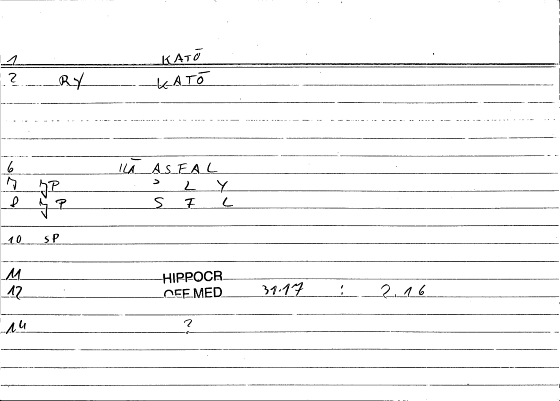 1 KATŌ
2 RY KATŌ
6 ILĀ ASFAL
7 ɔ L Y
8 S F L
10 SP
11 HIPPOCR
12 OFF MED 31.17 : 2.16
14 ?